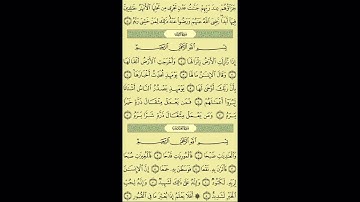 جَزَآؤُهُمْ عِندَ رَبِّهِمْ جَنَّٰتُ عَدْنٍ تَجْرِى مِن تَحْتِهَا ٱلْأَنْهَٰرُ خَٰلِدِينَ
فِيهَآ أَبَدًا رَّضِىَ ٱللَّهُ عَنْهُمْ وَرَضُوا۟ عَنْهُ ذَٰلِكَ لِمَنْ خَشِىَ رَبَّهُۥ ۝٨
بِسْمِ ٱللَّهِ ٱلرَّحْمَٰنِ ٱلرَّحِيمِ
إِذَا زُلْزِلَتِ ٱلْأَرْضُ زِلْزَالَهَا ۝١ وَأَخْرَجَتِ ٱلْأَرْضُ أَثْقَالَهَا
۝٢ وَقَالَ ٱلْإِنسَٰنُ مَا لَهَا ۝٣ يَوْمَئِذٍ تُحَدِّثُ أَخْبَارَهَا ۝٤
بِأَنَّ رَبَّكَ أَوْحَىٰ لَهَا ۝٥ يَوْمَئِذٍ يَصْدُرُ ٱلنَّاسُ أَشْتَاتًا
لِّيُرَوْا۟ أَعْمَٰلَهُمْ ۝٦ فَمَن يَعْمَلْ مِثْقَالَ ذَرَّةٍ خَيْرًا
يَرَهُۥ ۝٧ وَمَن يَعْمَلْ مِثْقَالَ ذَرَّةٍ شَرًّا يَرَهُۥ ۝٨
بِسْمِ ٱللَّهِ ٱلرَّحْمَٰنِ ٱلرَّحِيمِ
وَٱلْعَٰدِيَٰتِ ضَبْحًا ۝١ فَٱلْمُورِيَٰتِ قَدْحًا ۝٢ فَٱلْمُغِيرَٰتِ صُبْحًا
۝٣ فَأَثَرْنَ بِهِۦ نَقْعًا ۝٤ فَوَسَطْنَ بِهِۦ جَمْعًا ۝٥ إِنَّ ٱلْإِنسَٰنَ
لِرَبِّهِۦ لَكَنُودٌ ۝٦ وَإِنَّهُۥ عَلَىٰ ذَٰلِكَ لَشَهِيدٌ ۝٧ وَإِنَّهُۥ لِحُبِّ
ٱلْخَيْرِ لَشَدِيدٌ ۝٨ ۞ أَفَلَا يَعْلَمُ إِذَا بُعْثِرَ مَا فِى ٱلْقُبُورِ ۝٩